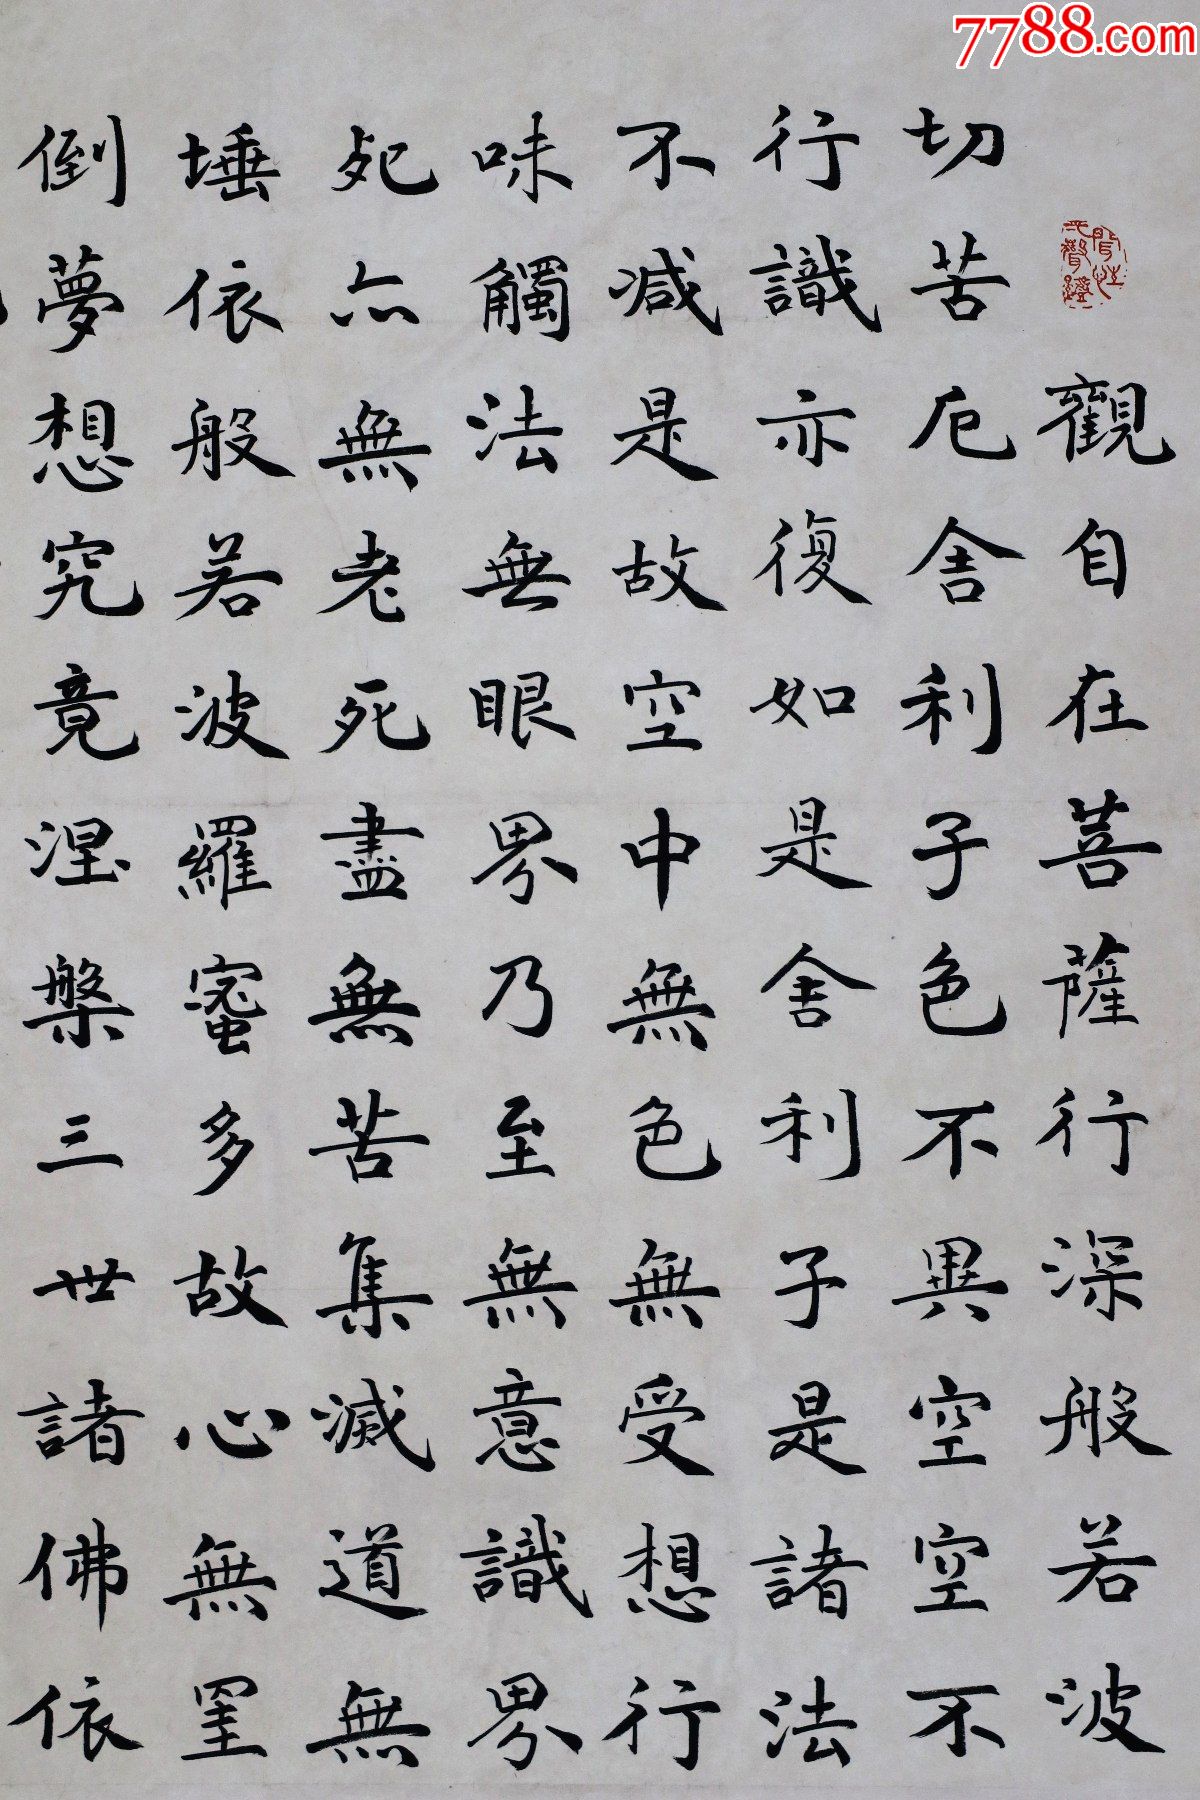 7788.com
觀自在菩薩行深般若波
切苦厄舍利子色不異空空不
行識亦復如是舍利子是諸法
不減是故空中無色無受想行
味觸法無眼界乃至無意識界
死亦無老死盡無苦集滅道無
埵依般若波羅蜜多故心無罣
倒夢想究竟涅槃三世諸佛依